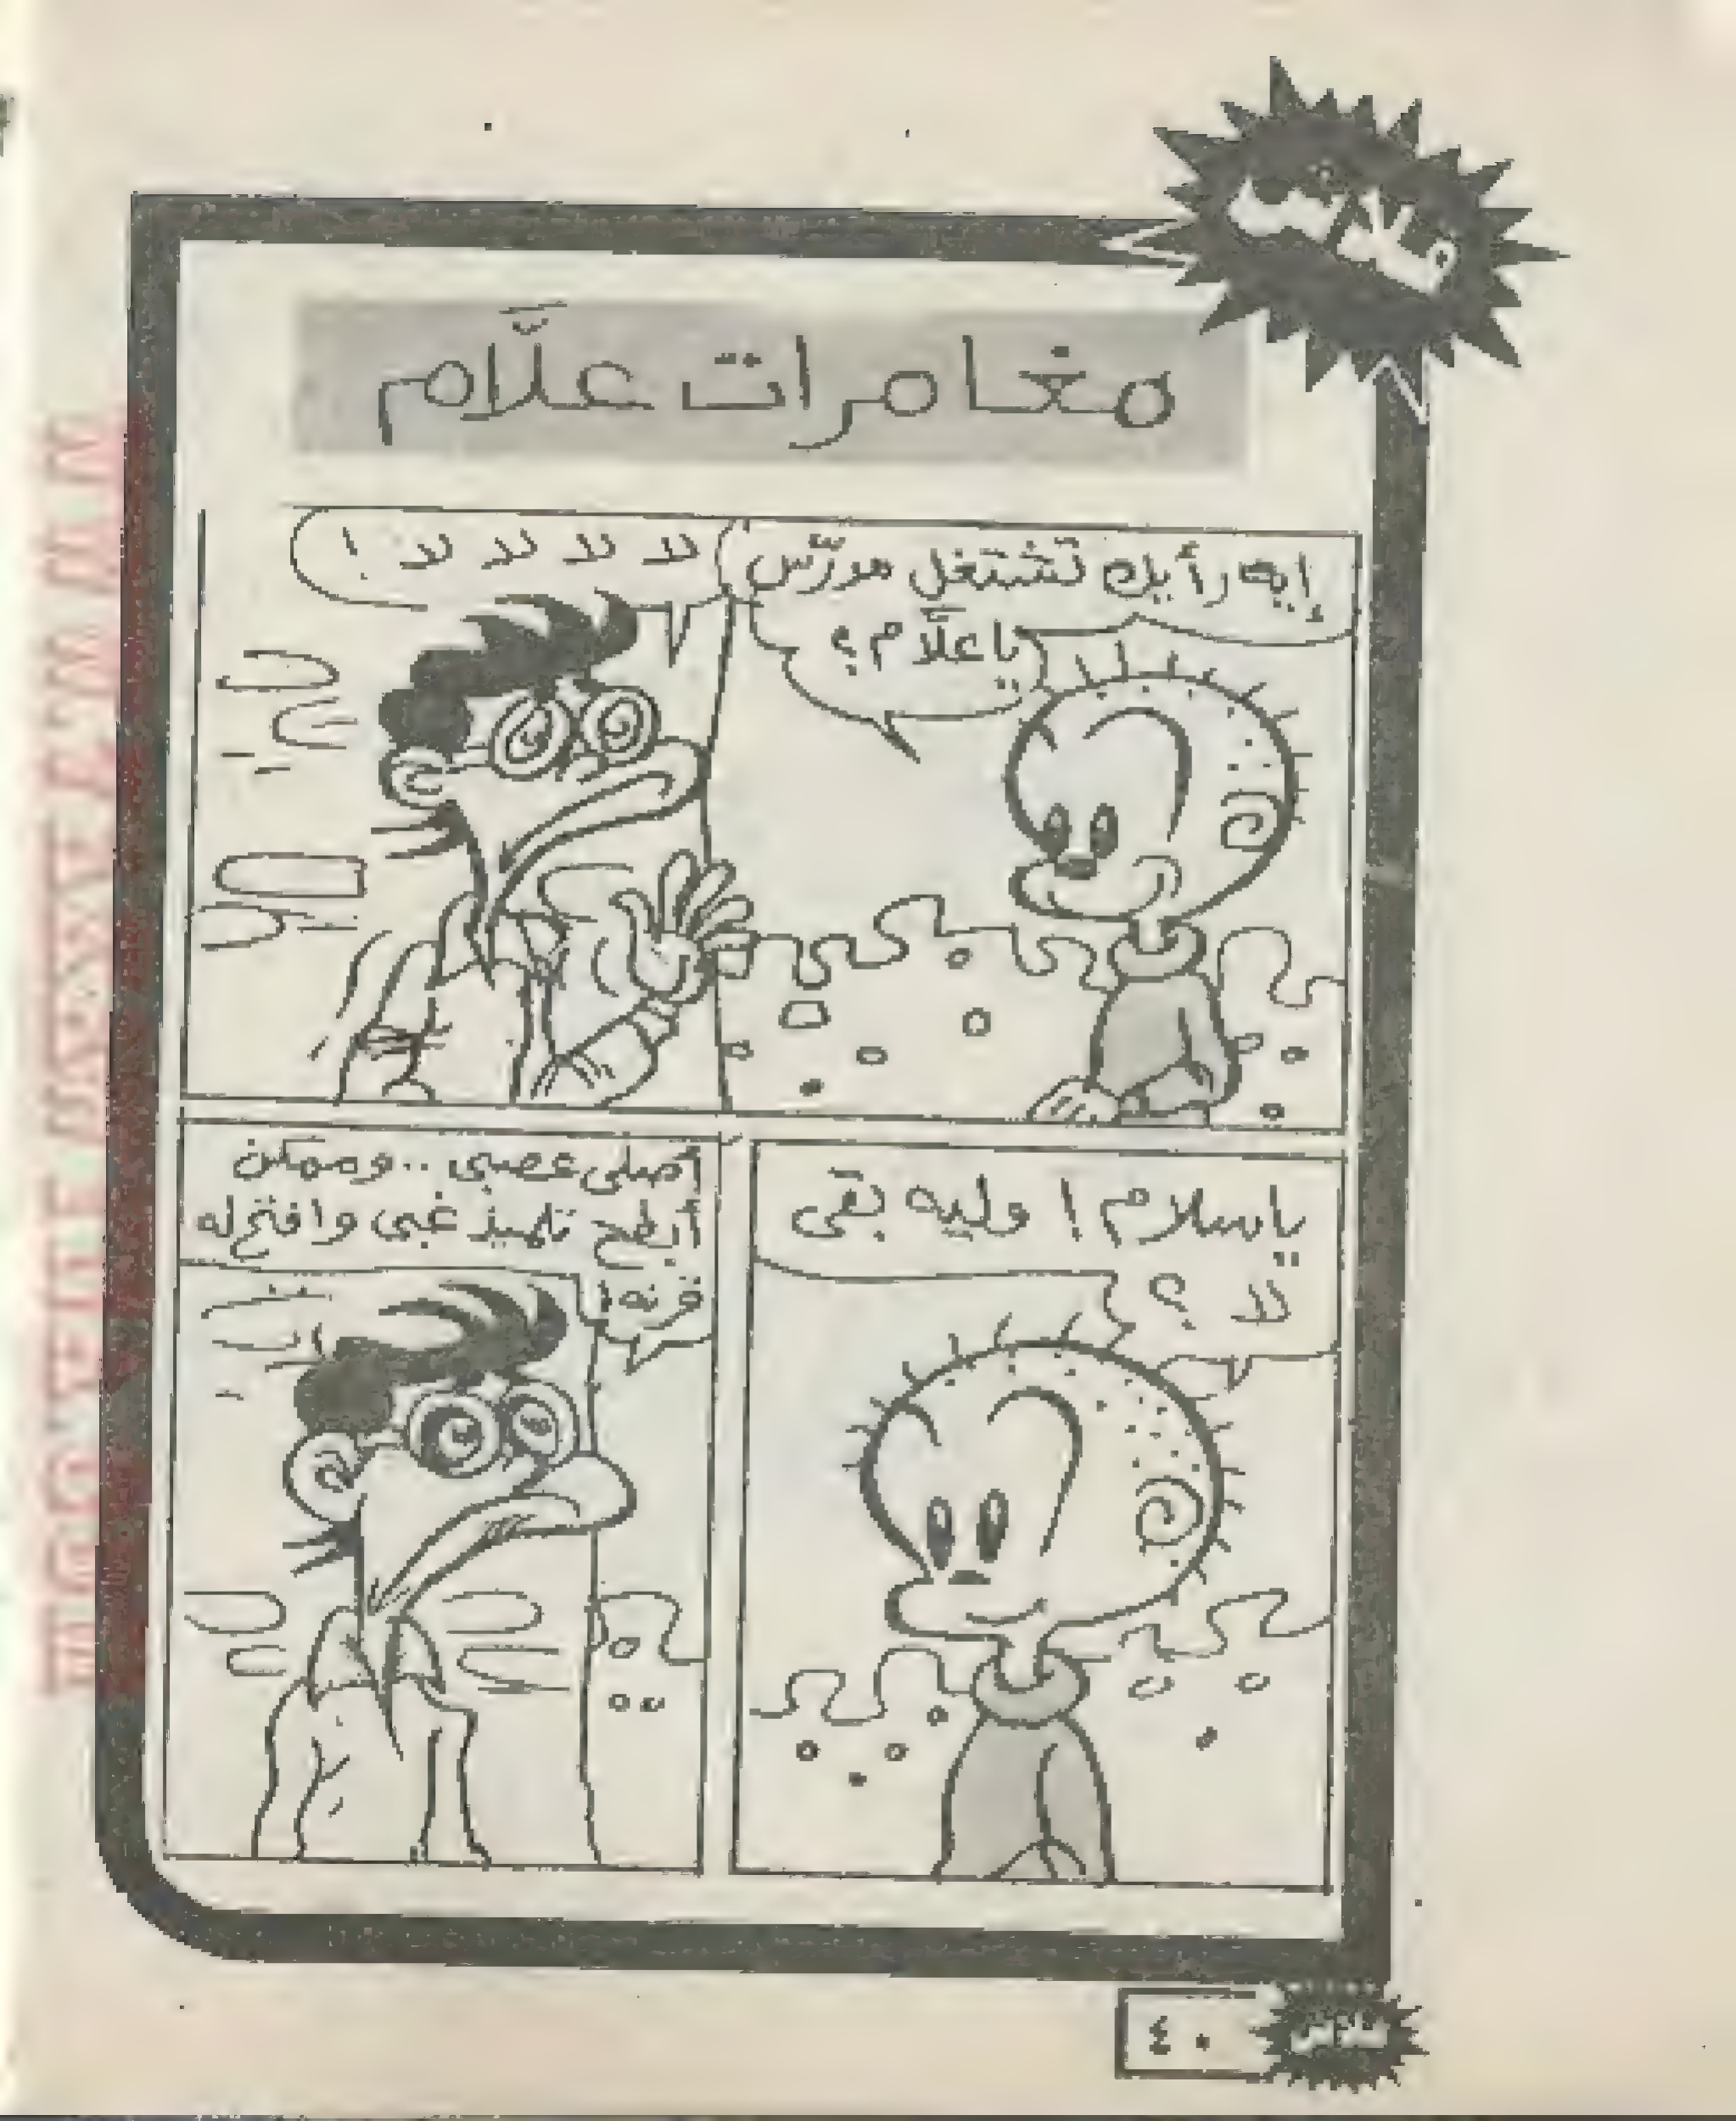 فلاش
مغامرات علَّام
إيه رأيك تشتغل مدرِّس
ياعلَّام؟
لا لا لا لا !
ياسلام! وليه بقى
لا ؟
أصلى عصبى .. وممكن
أبطح تلميذ غبى وافتح له
قرنه!
فلاش
٤٠